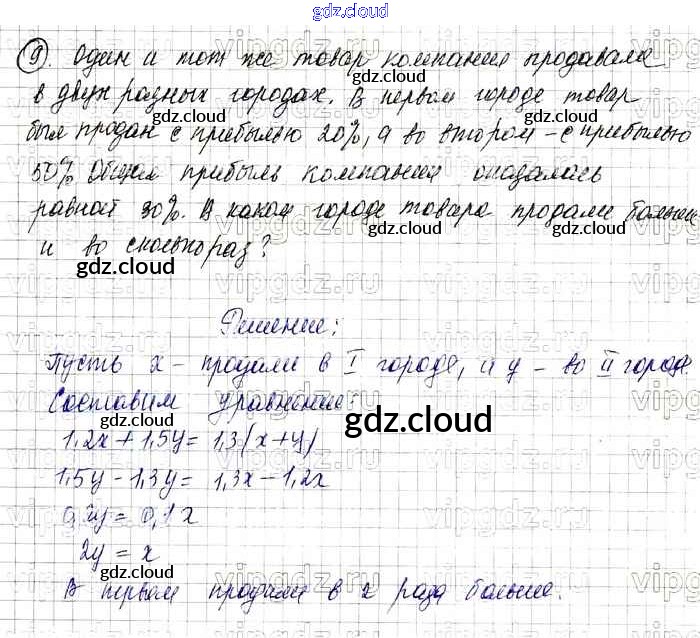 gdz.cloud
9. Один и тот же товар компания продавала
gdz.cloud gdz.cloud
в двух разных городах. В первом городе товар
был продан с прибылью 20%, а во втором – с прибылью
50% Общая прибыль компании оказалась
gdz.cloud gdz.cloud
равной 30%. В каком городе товара продали больше
и во сколько раз?
gdz.cloud
Решение:
Пусть x – продали в I городе, и y – во II городе
gdz.cloud gdz.cloud
Составим уравнение:
gdz.cloud
1,2x + 1,5y = 1,3(x+y)
1,5y - 1,3y = 1,3x - 1,2x
0,2y = 0,1x
2y = x
gdz.cloud gdz.cloud
В первом продали в 2 раза больше.